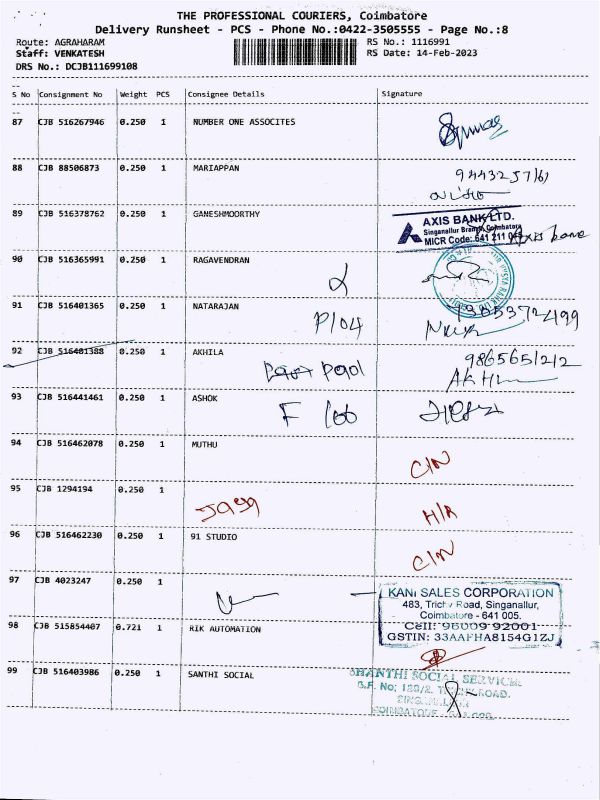 THE PROFESSIONAL COURIERS, Coimbatore
Delivery Runsheet - PCS - Phone No.:0422-3505555 - Page No.:8
Route: AGRAHARAM
RS No.: 1116991
Staff: VENKATESH
RS Date: 14-Feb-2023
DRS No.: DCJB111699108
S No Consignment No Weight PCS Consignee Details Signature
87 CJB 516267946 0.250 1 NUMBER ONE ASSOCITES
88 CJB 88506873 0.250 1 MARIAPPAN
89 CJB 516378762 0.250 1 GANESHMOORTHY
AXIS BANK LTD.
Singanallur Branch, Coimbatore
MICR Code: 641 211
Axis bank
90 CJB 516365991 0.250 1 RAGAVENDRAN
91 CJB 516401365 0.250 1 NATARAJAN
P104
92 CJB 516401388 0.250 1 AKHILA
9865651212
P901
93 CJB 516441461 0.250 1 ASHOK
F 100
94 CJB 516462078 0.250 1 MUTHU
C/N
95 CJB 1294194 0.250 1
Jaya H/R
96 CJB 516462230 0.250 1 91 STUDIO
C/N
97 CJB 4023247 0.250 1
KANI SALES CORPORATION
483, Trichy Road, Singanallur,
Coimbatore - 641 005.
Cell: 96009 92001
GSTIN: 33AAFHA8154G1ZJ
98 CJB 515854407 0.721 1 RIK AUTOMATION
99 CJB 516403986 0.250 1 SANTHI SOCIAL
SHANTHI SOCIAL SERVICES
S.F. No; 180/2, TRICHY ROAD.